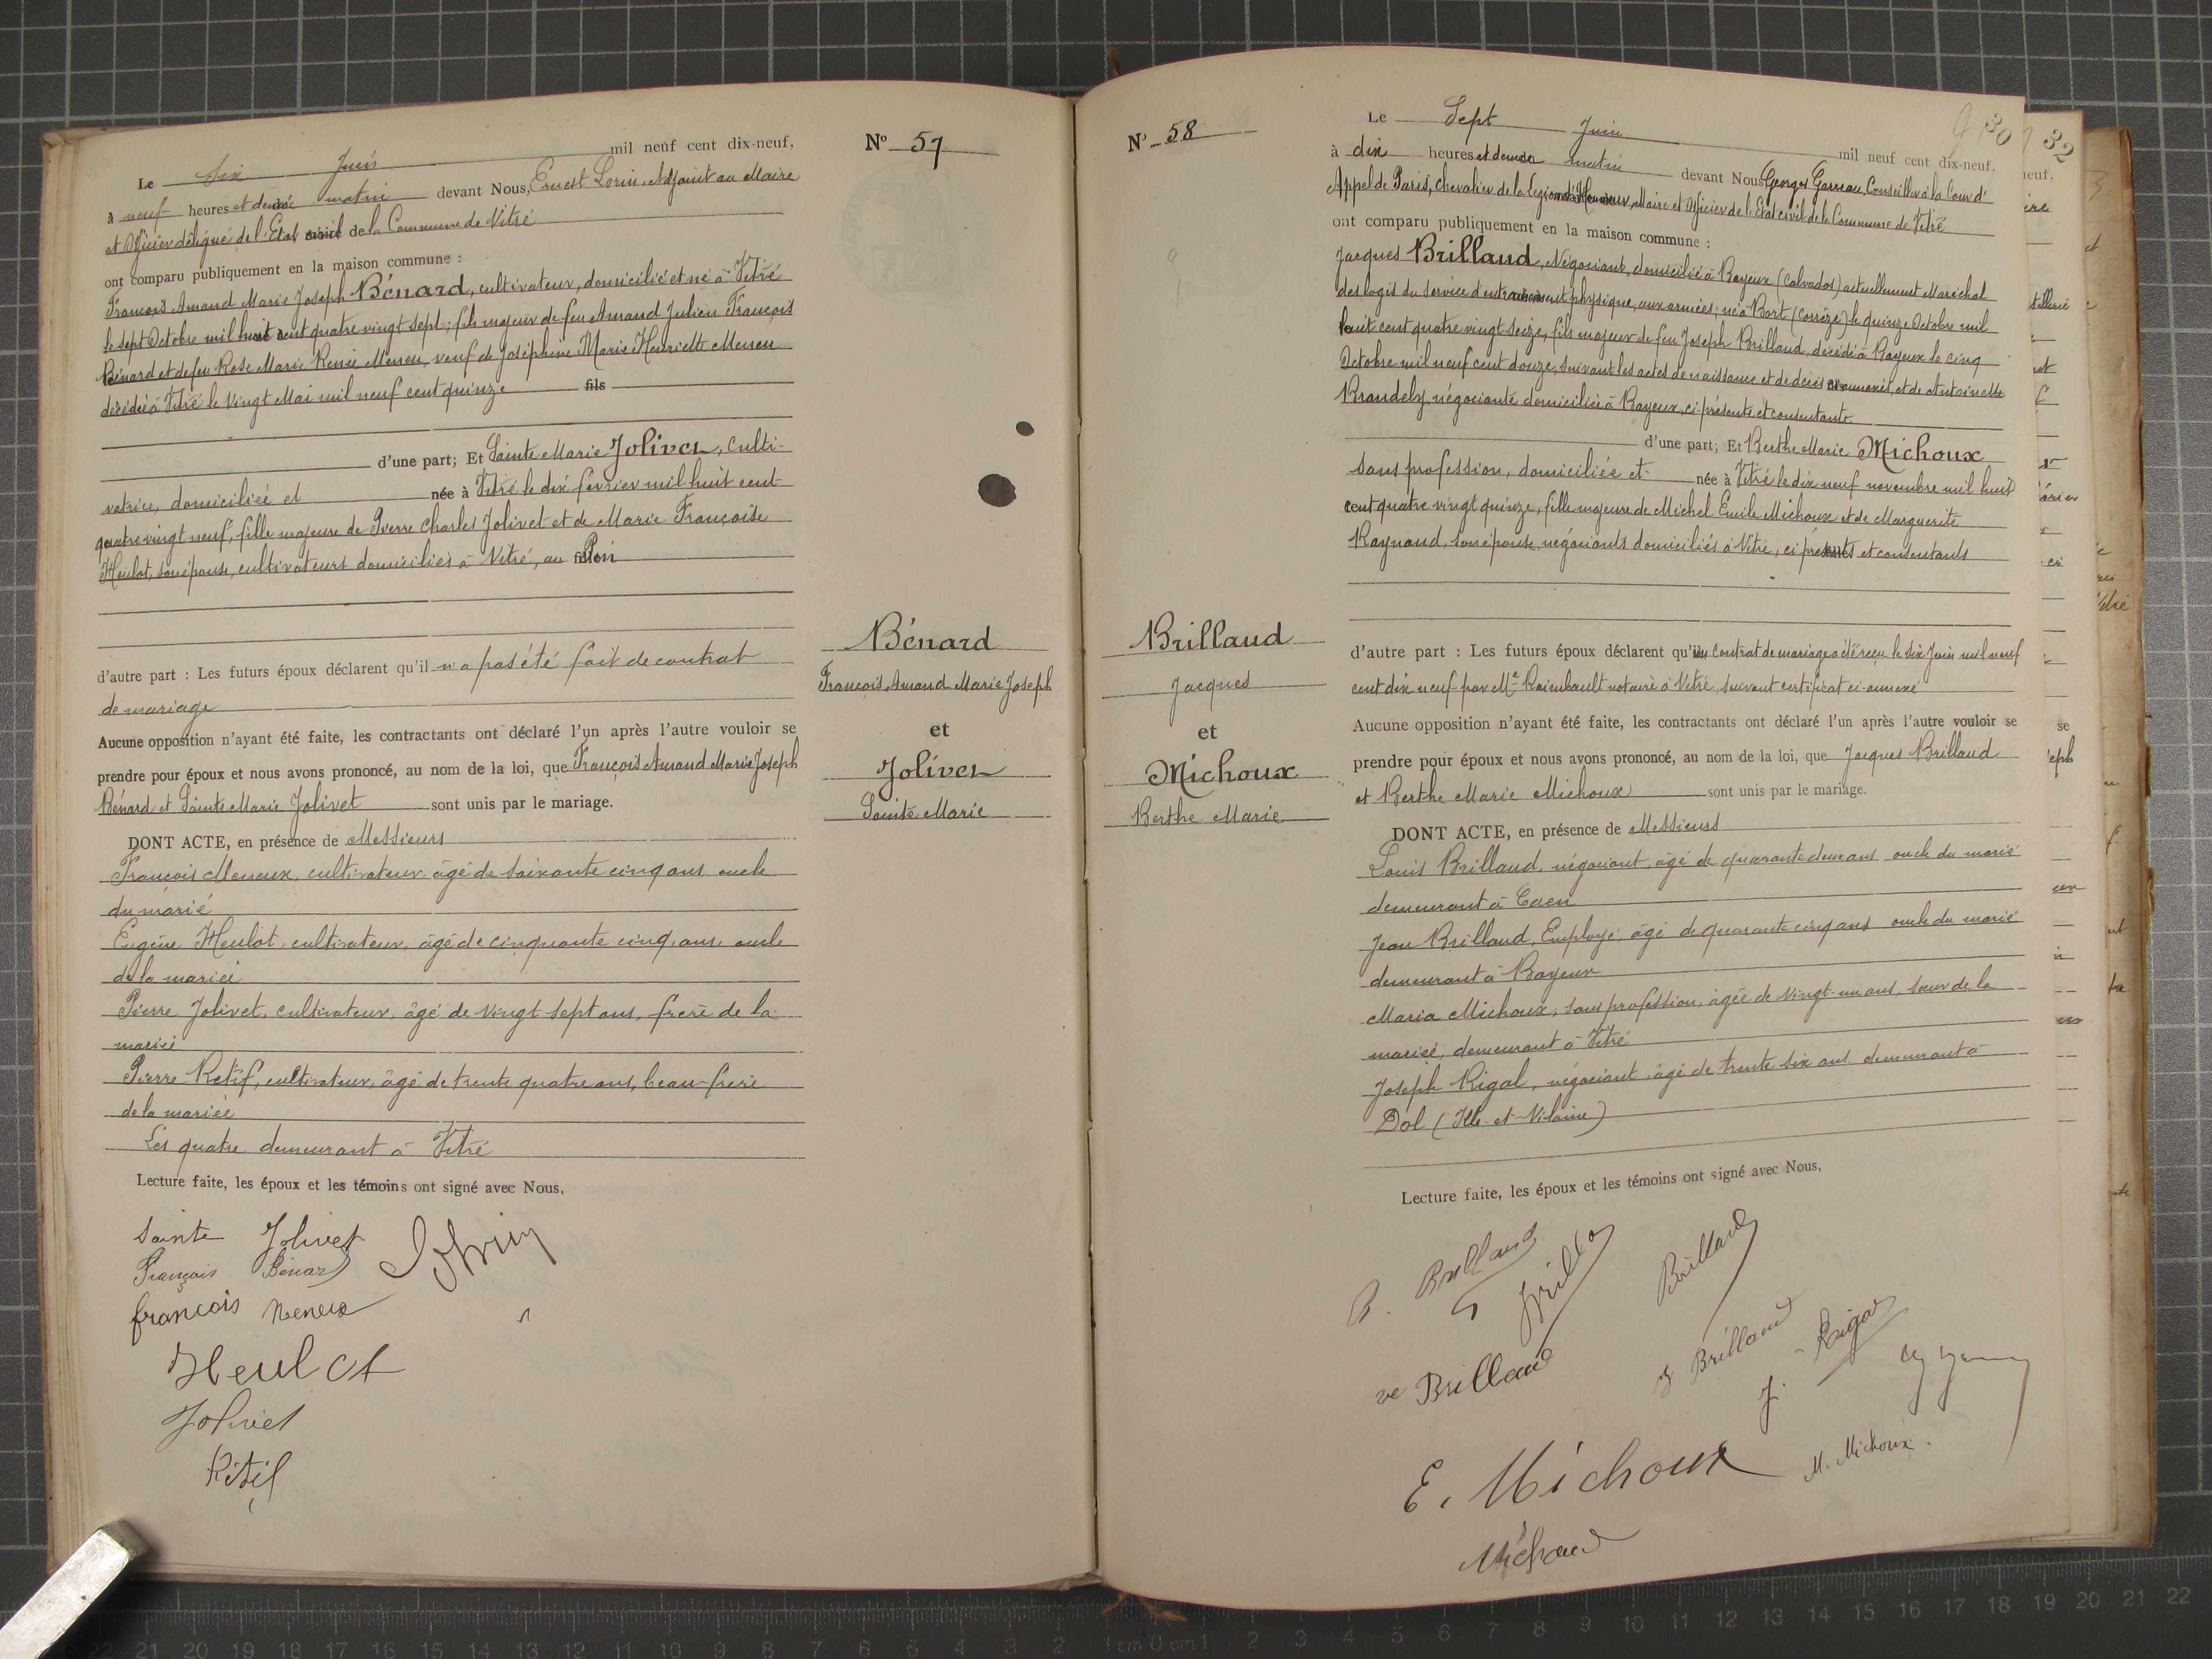 Le six Juin mil neuf cent dix-neuf,
à neuf heures et demie matin devant Nous, Ernest Lorin, Adjoint au Maire
et Officier délégué de l'Etat civil de la Commune de Vitré
ont comparu publiquement en la maison commune :
François Amand Marie Joseph Bénard, cultivateur, domicilié et né à Vitré
le sept Octobre mil huit cent quatre vingt sept ; fils majeur de feu Amand Julien François
Bénard et de feu Rose Marie Renée Meneu, veuf de Joséphine Marie Henriette Meneu
décédée à Vitré le vingt Mai mil neuf cent quinze fils
d'une part; Et Sainte Marie Jolivet, culti-
vatrice, domiciliée et née à Vitré le dix février mil huit cent
quatre vingt neuf, fille majeure de Pierre Charles Jolivet et de Marie Françoise
Heulot, son épouse, cultivateurs domiciliés à Vitré, au
d'autre part : Les futurs époux déclarent qu'il n'a pas été fait de contrat
de mariage
Aucune opposition n'ayant été faite, les contractants ont déclaré l'un après l'autre vouloir se
prendre pour époux et nous avons prononcé, au nom de la loi, que François Amand Marie Joseph
Bénard et Sainte Marie Jolivet sont unis par le mariage.
DONT ACTE, en présence de Messieurs
François Meneux, cultivateur, âgé de soixante cinq ans, oncle
du marié
Eugène Heulot, cultivateur, âgé de cinquante cinq ans, oncle
de la mariée
Pierre Jolivet, cultivateur, âgé de vingt sept ans, frère de la
mariée
Pierre Retif, cultivateur, âgé de trente quatre ans, beau-frère
de la mariée
Les quatre demeurant à Vitré
Lecture faite, les époux et les témoins ont signé avec Nous,
Sainte Jolivet
François Bénard
françois Meneux
Heulot
Jolivet
Rétif
N° 57
Bénard
François Amand Marie Joseph
et
Jolivet
Sainte Marie
N° 58
Brillaud
Jacques
et
Michoux
Berthe Marie
30
32
Le Sept Juin mil neuf cent dix-neuf,
à dix heures et demie matin devant Nous Georges Garreau, Conseiller à la Cour d'
Appel de Paris, Chevalier de la Légion d'Honneur, Maire et Officier de l'Etat civil de la Commune de Vitré
ont comparu publiquement en la maison commune :
Jacques Brillaud, Négociant, domicilié à Bayeux (Calvados) actuellement Maréchal
des logis du service d'entrainement physique, aux armées ; né à Bort (Corrèze) le quinze Octobre mil
huit cent quatre vingt seize, fils majeur de feu Joseph Brillaud, décédé à Bayeux le cinq
Octobre mil neuf cent douze, suivant les actes de naissance et de décès ci annexés, et de Antoinette
Brandely, négociante domiciliée à Bayeux, ci-présente et consentante
d'une part; Et Berthe Marie Michoux
sans profession, domiciliée et née à Vitré le dix neuf novembre mil huit
cent quatre vingt quinze, fille majeure de Michel Emile Michoux et de Marguerite
Raynaud, son épouse, négociants domiciliés à Vitré, ci présents et consentants
d'autre part : Les futurs époux déclarent qu'un contrat de mariage a été reçu le six Juin mil neuf
cent dix neuf par Me Raimbault notaire à Vitré, suivant certificat ci-annexé
Aucune opposition n'ayant été faite, les contractants ont déclaré l'un après l'autre vouloir se
prendre pour époux et nous avons prononcé, au nom de la loi, que Jacques Brillaud
et Berthe Marie Michoux sont unis par le mariage.
DONT ACTE, en présence de Messieurs
Louis Brillaud, négociant, âgé de quarante deux ans oncle du marié
demeurant à Caen
Jean Brillaud, Employé, âgé de quarante cinq ans oncle du marié
demeurant à Bayeux
Maria Michoux, sans profession, âgée de vingt-un ans, sœur de la
mariée, demeurant à Vitré
Joseph Rigal, négociant, âgé de trente six ans demeurant à
Dol (Ille-et-Vilaine)
Lecture faite, les époux et les témoins ont signé avec Nous,
B. Brillaud
Brillaud
ve Brillaud
J Brillaud
J. Rigal
E. Michoux
M. Michoux.
Michoux